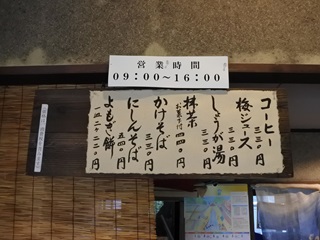 営業時間
09:00～16:00
コーヒー 三三〇円
梅ジュース 三三〇円
しょうが湯 三三〇円
抹茶 お菓子付 四四〇円
かけそば 三三〇円
にしんそば 五五〇円
よもぎ餅 一皿二ケ二二〇円